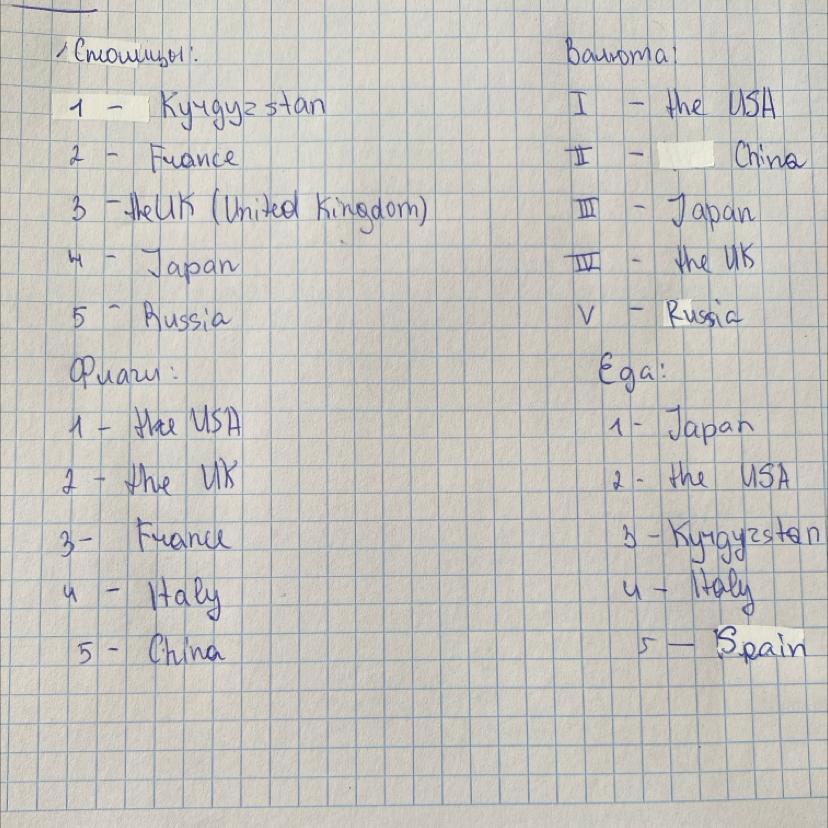 Столицы:
1 - Kyrgyzstan
2 - France
3 - the UK (United Kingdom)
4 - Japan
5 - Russia
Флаги:
1 - the USA
2 - the UK
3 - France
4 - Italy
5 - China
Валюта:
I - the USA
II - China
III - Japan
IV - the UK
V - Russia
Еда:
1 - Japan
2 - the USA
3 - Kyrgyzstan
4 - Italy
5 - Spain